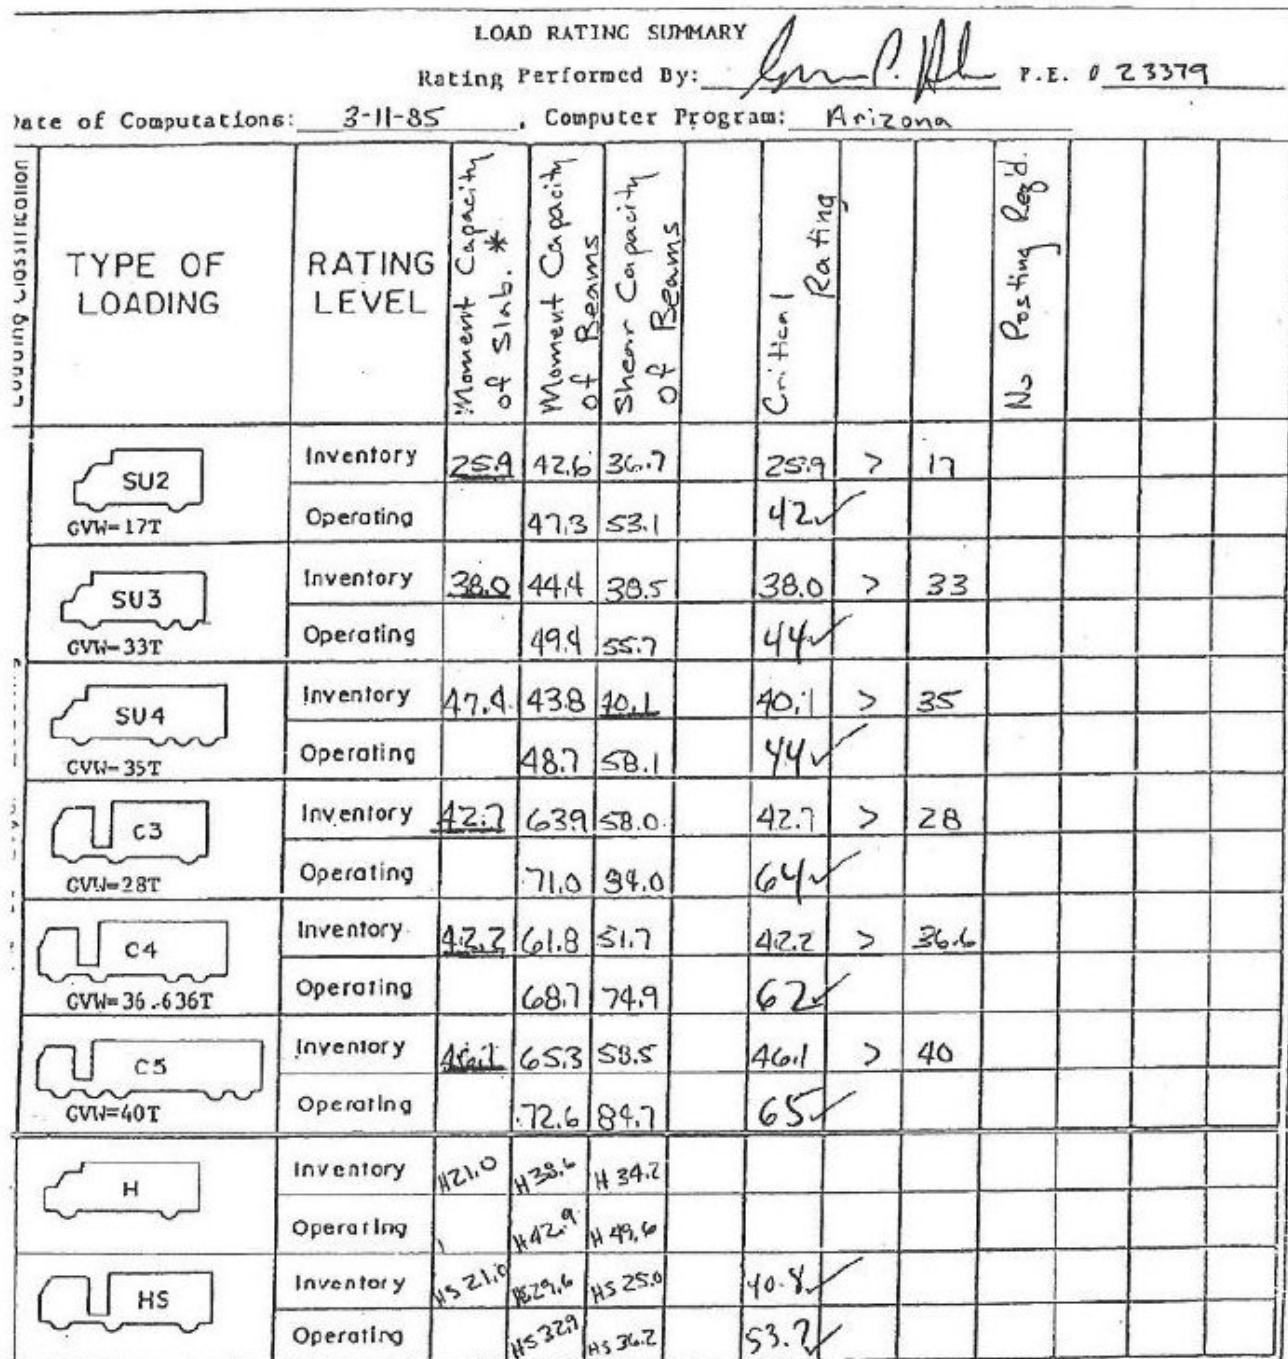 LOAD RATING SUMMARY
Rating Performed By: P.E. # 23379
Date of Computations: 3-11-85, Computer Program: Arizona
TYPE OF LOADING
RATING LEVEL
Moment Capacity of Slab. *
Moment Capacity of Beams
Shear Capacity of Beams
Critical Rating
No Posting Req'd.
SU2
GVW=17T
Inventory 25.9 42.6 36.7 25.9 > 17
Operating 47.3 53.1 42 ✓
SU3
GVW=33T
Inventory 38.0 44.4 38.5 38.0 > 33
Operating 49.4 55.7 44 ✓
SU4
GVW=35T
Inventory 47.4 43.8 40.1 40.1 > 35
Operating 48.7 58.1 44 ✓
C3
GVW=28T
Inventory 42.7 63.9 58.0 42.7 > 28
Operating 71.0 84.0 64 ✓
C4
GVW=36.636T
Inventory 42.2 61.8 51.7 42.2 > 36.6
Operating 68.7 74.9 62 ✓
C5
GVW=40T
Inventory 46.1 65.3 58.5 46.1 > 40
Operating 72.6 84.7 65 ✓
H
Inventory H21.0 H38.6 H 34.2
Operating H42.9 H 49.6
HS
Inventory HS 21.0 HS29.6 HS 25.0 40.8 ✓
Operating HS 32.9 HS 36.2 53.7 ✓